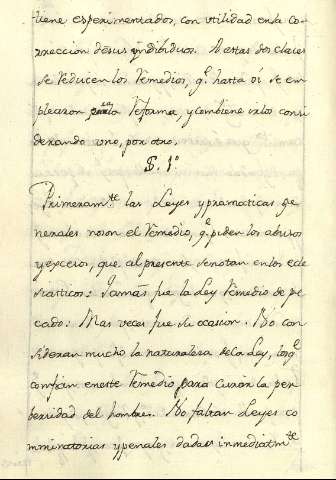 tiene esperimentados, con utilidad en la co-
rreccion desus yndibiduos. A estas dos clases
se reducen los remedios, q.e hasta oi se em-
plearon para reforma, y combiene irlos consi
derando uno, por otro.
§. 1º
Primeram.te las Leyes y pramaticas ge
nerales no son el remedio, q.e piden los abusos
y excesos, que al presente se notan en los ecle
siasticos: Jamás fue la Ley remedio de pe
cado: Mas veces fue su ocasion. No con
sideran mucho la naturaleza dela Ley, los q.e
confian en este remedio para curar la per
bersidad del hombre. No faltan Leyes co
mminatorias y penales dadas inmediatm.te